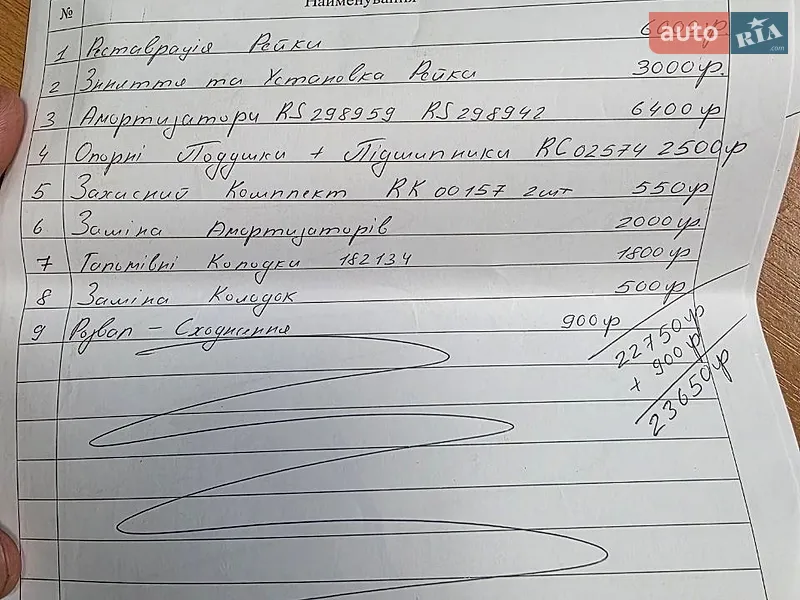 № Найменування
1 Реставрація Рейки 6000гр.
auto RIA .com
2 Зняття та Установка Рейки 3000гр.
3 Амортизатори RS298959 RS298942 6400гр
4 Опорні Подушки + Підшипники RC02574 2500гр
5 Захисний Комплект RK00157 2шт 550гр
6 Заміна Амортизаторів 2000гр.
7 Гальмівні Колодки 182134 1800гр
8 Заміна Колодок 500гр
9 Розвал - Сходження 900гр
22750гр
+ 900гр
23650гр